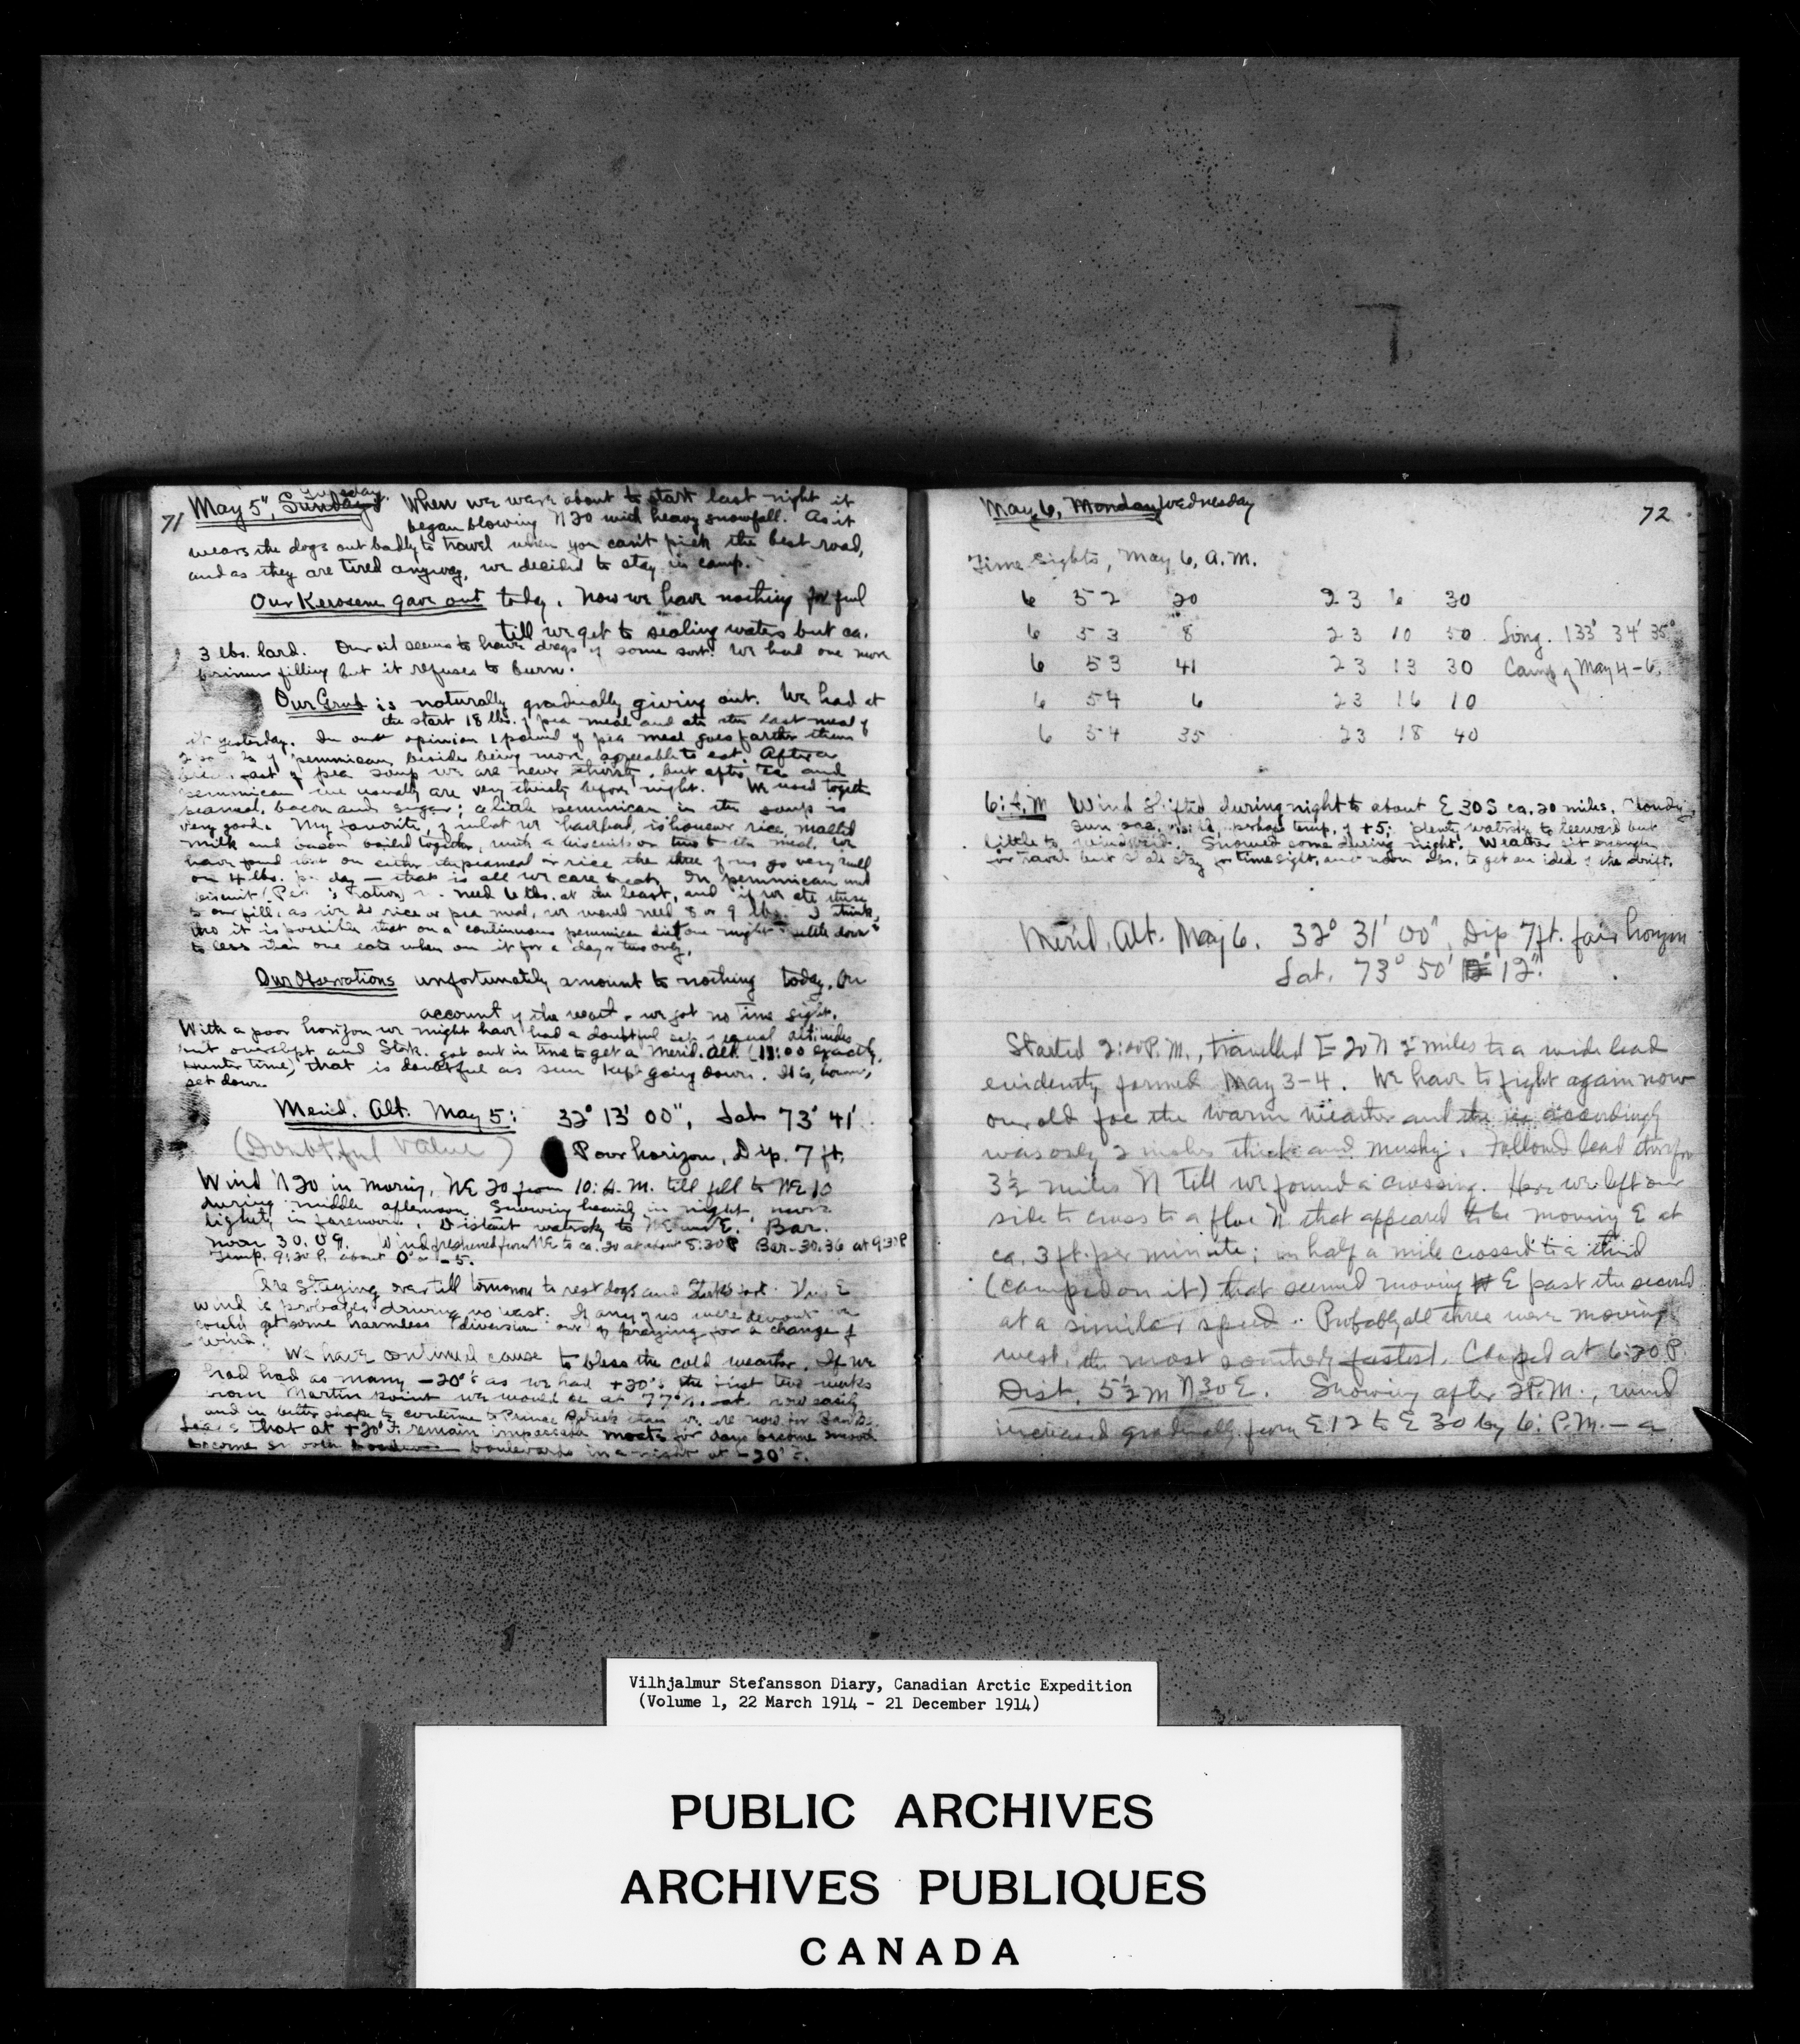 71
May 5", Sunday Tuesday. When we were about to start last night it
began blowing N20 with heavy snowfall. As it
wears the dogs out badly to travel when you can't pick the best road,
and as they are tired anyway, we decided to stay in camp.
Our Kerosene gave out today. Now we have nothing for fuel
till we get to sealing waters but ca.
3 lbs. lard. Our oil seems to have dregs of some sort. We had one more
primus filling but it refuses to burn.
Our Grub is naturally gradually giving out. We had at
the start 18 lbs. of pea meal and ate the last meal of
it yesterday. In our opinion 1 pound of pea meal goes farther than
of pemmican, beside being more agreeable to eat. After a
breakfast of pea soup we are never thirsty, but after tea and
pemmican we usually are very thirsty before night. We used together
peameal, bacon and sugar; a little pemmican in the soup is
very good. My favorite, of what we have had, is however rice, malted
milk and bacon boiled together, with a biscuit or two to the meal. We
have found that on either the peameal or rice the three of us go very well
on 4 lbs. per day — that is all we care to eat. On pemmican and
biscuit need 6 lbs. at the least, and if we ate these
to our fill, as we do rice or pea meal, we would need 8 or 9 lbs. I think,
tho it is possible that on a continuous pemmican diet one might settle down
to less than one eats when on it for a day or two only.
Our Observations unfortunately amount to nothing today. On
account of the weather we got no time sight.
With a poor horizon we might have had a doubtful set of equal altitudes
but overslept and Stork. got out in time to get a Merid. Alt. (12:00 exactly,
Hunter time) that is doubtful as sun kept going down. It is, however,
set down.
Merid. Alt. May 5: 32° 13' 00", Lat 73° 41'
(Doubtful Value) Poor horizon, Dip. 7 ft.
Wind N20 in morning, NE 20 from 10: A.M. till fell to NE 10
during middle afternoon. Snowing heavily in night, more
lightly in forenoon. Distant watersky to NE and E. Bar.
noon 30.09. Wind freshened from NE to ca. 20 at about 8:30P Bar. 30.36 at 9:30P
Temp. 9:30 P. about 0° or -5.
Are staying over till tomorrow to rest dogs and Stork's foot. This E
wind is probably driving us west. If any of us were devout we
could get some harmless diversion out of praying for a change of
wind.
We have continued cause to bless the cold weather. If we
had had as many -20°s as we had +20°s the first two weeks
from Martin Point we would be at 77° N. Lat. now easily
and in better shape to continue to Prince Patrick than we are now for Banks.
Leads that at +20° F. remain impassable moats for days become smooth
become smooth boulevards in a night at -20° F.
May 6, Monday Wednesday
72
Time Sights, May 6, A.M.
6 52 20 23 6 30
6 53 8 23 10 50 Long. 133° 34' 35"
6 53 41 23 13 30 Camp of May 4-6.
6 54 6 23 16 10
6 54 35 23 18 40
6: A.M Wind shifted during night to about E 30 S ca. 20 miles. Cloudy,
sun occ. visible, perhaps temp. of +5. Plenty watersky to leeward but
little to windward. Snowed some during night. Weather fit enough
for travel but shall stay for time sight, and noon obs. to get an idea of the drift.
Merid. Alt. May 6. 32° 31' 00", Dip 7 ft. fair horizon
Lat. 73° 50' 12".
Started 2:40 P.M., travelled E 20 N 2 miles to a wide lead
evidently formed May 3-4. We have to fight again now
our old foe the warm weather and the ice accordingly
was only 2 inches thick and mushy. Followed lead therefore
3½ miles N till we found a crossing. Here we left our
side to cross to a floe N. that appeared to be moving E at
ca. 3 ft. per minute; in half a mile crossed to a third
(camped on it) that seemed moving E past the second
at a similar speed. Probably all three were moving
west, the most southerly fastest. Camped at 6:20 P.
Dist. 5½ m N30E. Snowing after 2 P.M., wind
increased gradually from E 12 to E 30 by 6: P.M. — a
Vilhjalmur Stefansson Diary, Canadian Arctic Expedition
(Volume 1, 22 March 1914 - 21 December 1914)
PUBLIC ARCHIVES
ARCHIVES PUBLIQUES
CANADA